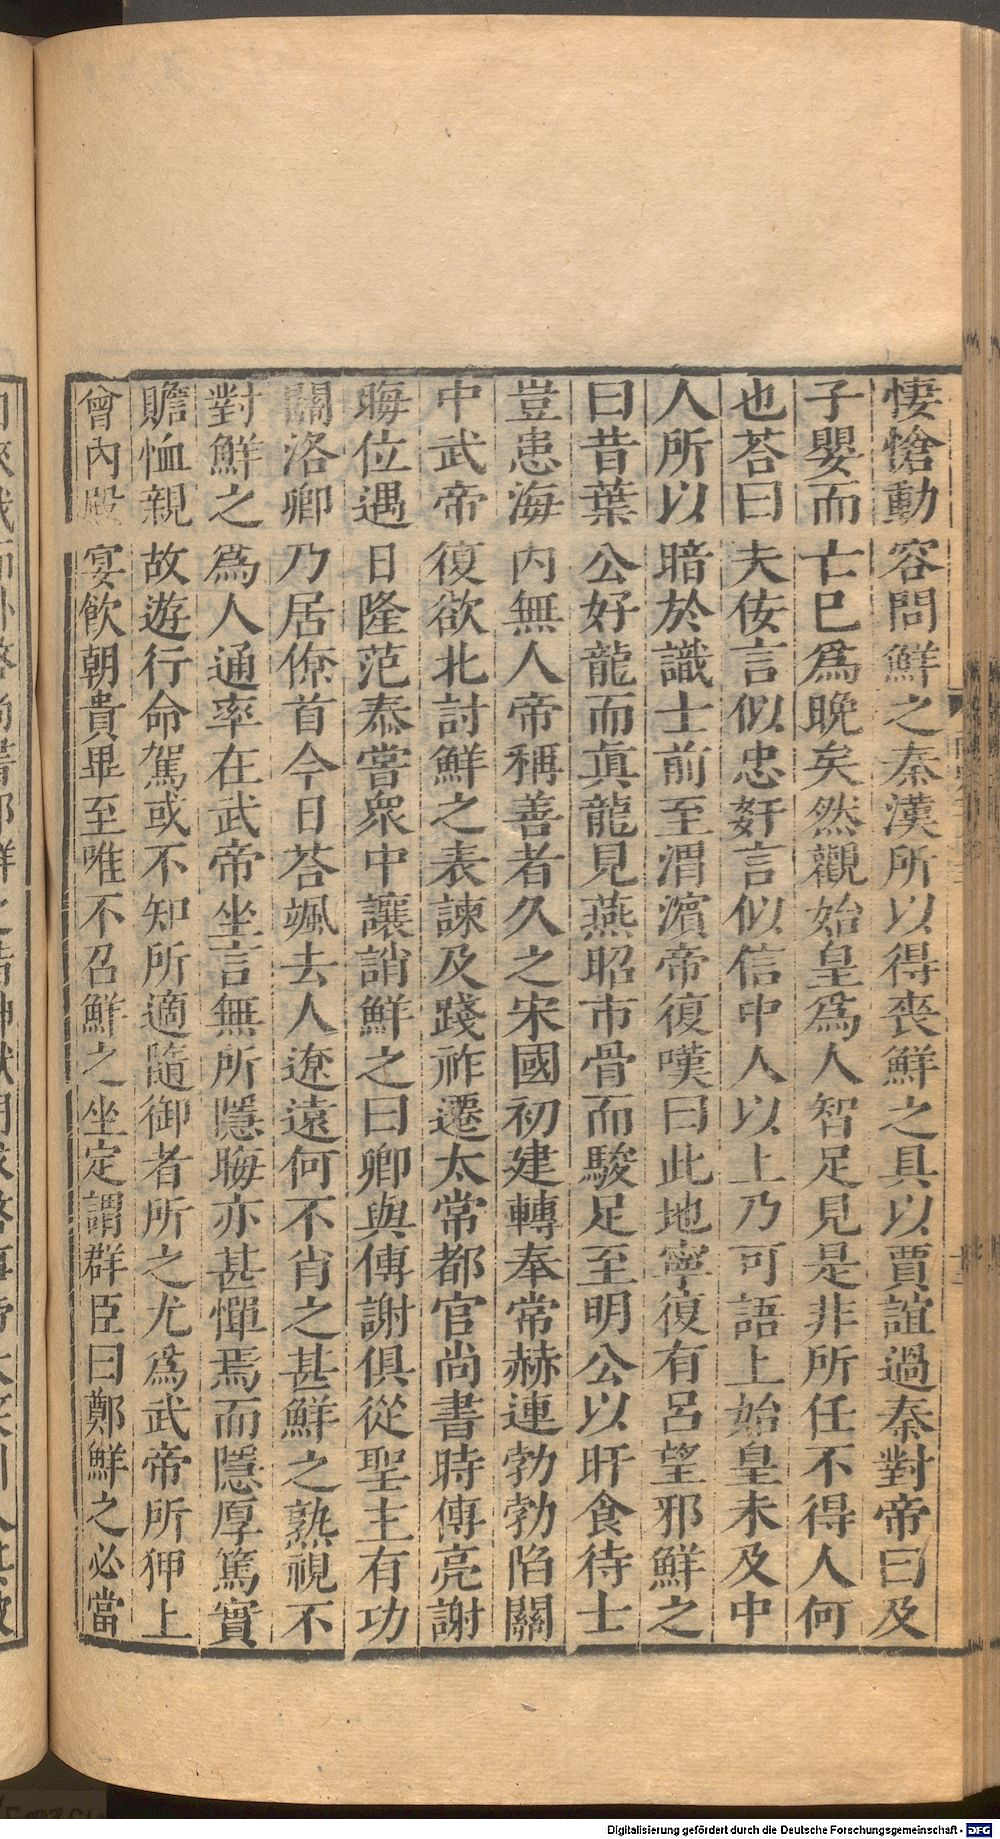 悽愴動容問鮮之秦漢所以得喪鮮之具以賈誼過秦對帝曰及
子嬰而亡已爲晚矣然觀始皇爲人智足見是非所任不得人何
也荅曰夫佞言似忠姧言似信中人以上乃可語上始皇未及中
人所以暗於識士前至渭濵帝復嘆曰此地寧復有呂望邪鮮之
曰昔葉公好龍而眞龍見燕昭市骨而駿足至明公以旰食待士
豈患海内無人帝稱善者久之宋國初建轉奉常赫連勃勃陷關
中武帝復欲北討鮮之表諫及踐祚遷太常都官尚書時傅亮謝
晦位遇日隆范泰嘗衆中讓誚鮮之曰卿與傅謝俱從聖主有功
關洛卿乃居僚首今日荅颯去人遼遠何不肖之甚鮮之熟視不
對鮮之爲人通率在武帝坐言無所隱晦亦甚憚焉而隱厚篤實
贍恤親故遊行命駕或不知所適隨御者所之尤爲武帝所狎上
曾内殿宴飲朝貴畢至唯不召鮮之坐定謂群臣曰鄭鮮之必當
Digitalisierung gefördert durch die Deutsche Forschungsgemeinschaft - DFG